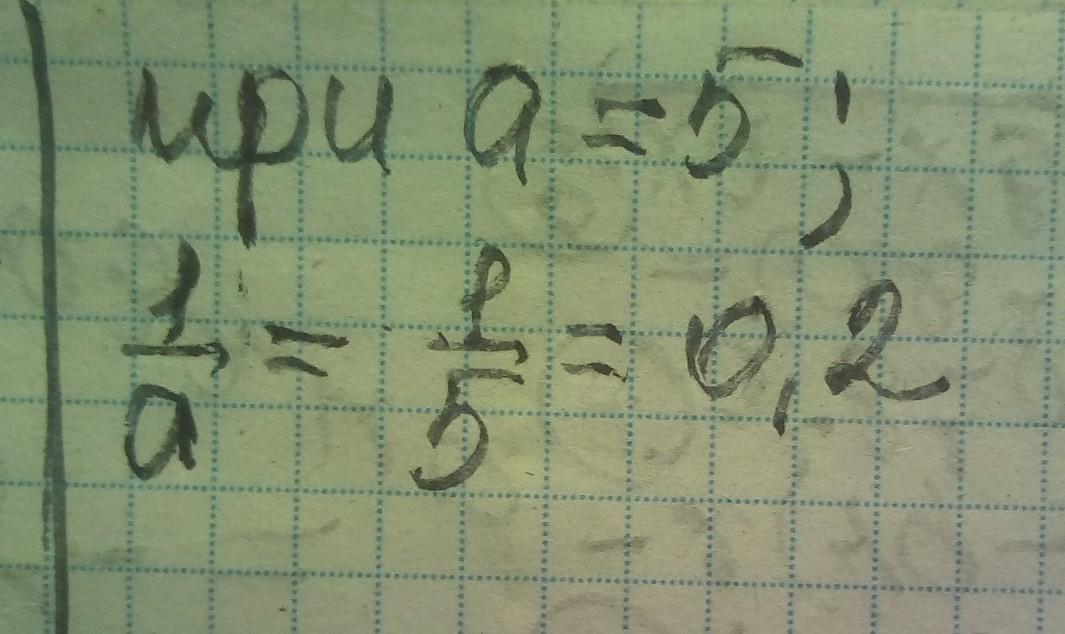 при a = 5;
1/a = 1/5 = 0,2